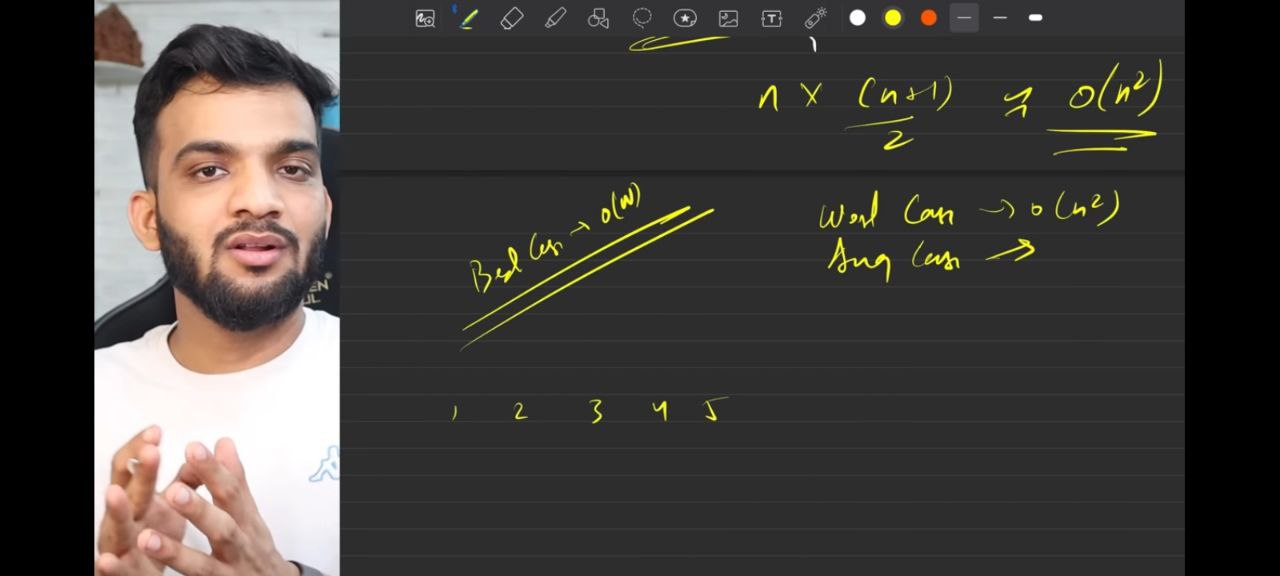 n × (n+1)/2 ≈ O(n²)
Best Case → O(N)
Worst Case → O(n²)
Avg Case →
1 2 3 4 5
EN
UL
T